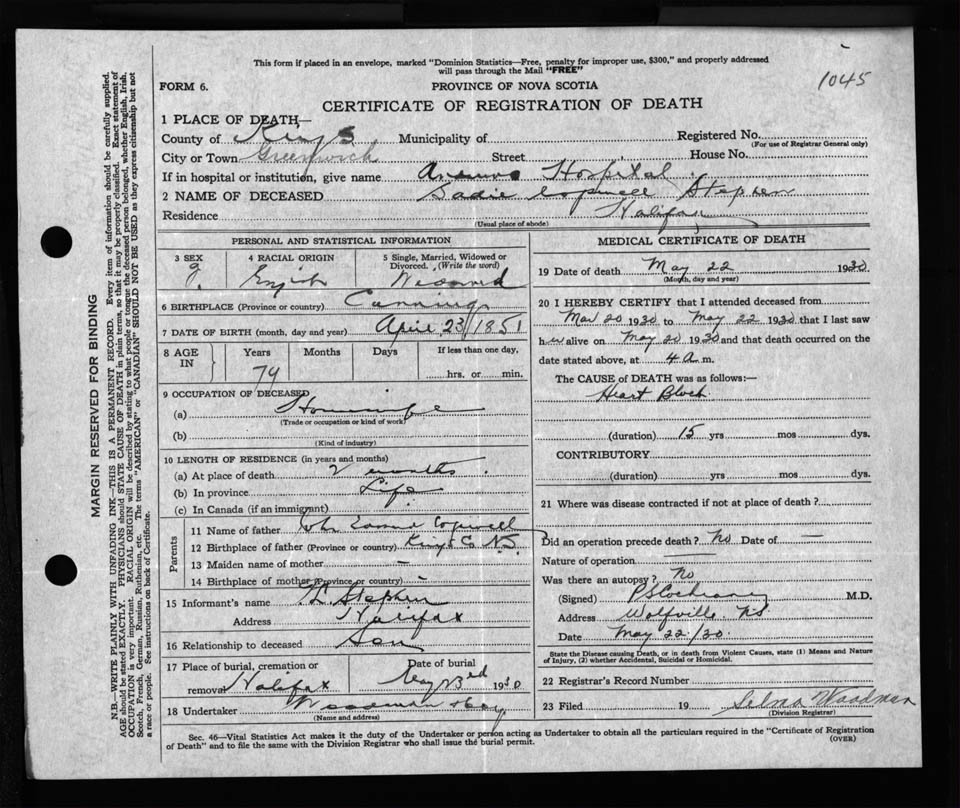 This form if placed in an envelope, marked "Dominion Statistics—Free, penalty for improper use, $300," and properly addressed
will pass through the Mail "FREE"
1045
FORM 6.
PROVINCE OF NOVA SCOTIA
CERTIFICATE OF REGISTRATION OF DEATH
1 PLACE OF DEATH—
County of Kings Municipality of Registered No.
(For use of Registrar General only)
City or Town Greenwich Street House No.
If in hospital or institution, give name Hospital
2 NAME OF DECEASED Sadie Stephen
Residence Halifax
(Usual place of abode)
PERSONAL AND STATISTICAL INFORMATION
3 SEX 4 RACIAL ORIGIN 5 Single, Married, Widowed or
Divorced. (Write the word)
English Widowed
6 BIRTHPLACE (Province or country) Canning
7 DATE OF BIRTH (month, day and year) April 23/1851
8 AGE IN Years Months Days If less than one day,
79 hrs. or min.
9 OCCUPATION OF DECEASED
(a) Housewife
(Trade or occupation or kind of work)
(b)
(Kind of industry)
10 LENGTH OF RESIDENCE (in years and months)
(a) At place of death 2 months
(b) In province Life
(c) In Canada (if an immigrant)
Parents
11 Name of father John
12 Birthplace of father (Province or country) Kings Co N.S.
13 Maiden name of mother —
14 Birthplace of mother (Province or country) -
15 Informant's name Stephen
Address Halifax
16 Relationship to deceased Son
17 Place of burial, cremation or Date of burial
removal Halifax May 23rd 1930
18 Undertaker Woodman
(Name and address)
MEDICAL CERTIFICATE OF DEATH
19 Date of death May 22 1930
(Month, day and year)
20 I HEREBY CERTIFY that I attended deceased from
Mar 20 1930 to May 22 1930 that I last saw
her alive on May 20 1930 and that death occurred on the
date stated above, at 4 a m.
The CAUSE of DEATH was as follows:—
Heart Block
(duration) 15 yrs mos dys.
CONTRIBUTORY
(duration) yrs mos dys.
21 Where was disease contracted if not at place of death?
Did an operation precede death? No Date of —
Nature of operation
Was there an autopsy? No
(Signed) Cochrane M.D.
Address Wolfville NS
Date May 22/30.
State the Disease causing Death, or in death from Violent Causes, state (1) Means and Nature
of Injury, (2) whether Accidental, Suicidal or Homicidal.
22 Registrar's Record Number
23 Filed 19 Selma Woodman
(Division Registrar)
Sec. 46—Vital Statistics Act makes it the duty of the Undertaker or person acting as Undertaker to obtain all the particulars required in the "Certificate of Registration
of Death" and to file the same with the Division Registrar who shall issue the burial permit.
(OVER)
MARGIN RESERVED FOR BINDING
N.B.—WRITE PLAINLY WITH UNFADING INK—THIS IS A PERMANENT RECORD. Every item of information should be carefully supplied.
AGE should be stated EXACTLY. PHYSICIANS should STATE CAUSE OF DEATH in plain terms, so that it may be properly classified. Exact statement of
OCCUPATION is very important. RACIAL ORIGIN will be described by stating to what people or tongue the deceased person belonged, whether English, Irish,
Scotch, French, German, Russian, Ruthenian, etc. The terms "AMERICAN" or "CANADIAN" SHOULD NOT BE USED as they express citizenship but not
a race or people. See instructions on back of Certificate.